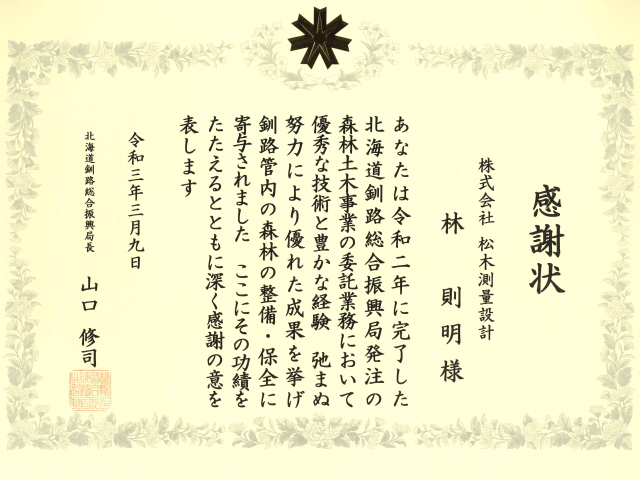 感謝状
株式会社 松木測量設計
林 則明様
あなたは令和二年に完了した
北海道釧路総合振興局発注の
森林土木事業の委託業務において
優秀な技術と豊かな経験 弛まぬ
努力により優れた成果を挙げ
釧路管内の森林の整備・保全に
寄与されました ここにその功績を
たたえるとともに深く感謝の意を
表します
令和三年三月九日
北海道釧路総合振興局長 山口 修司